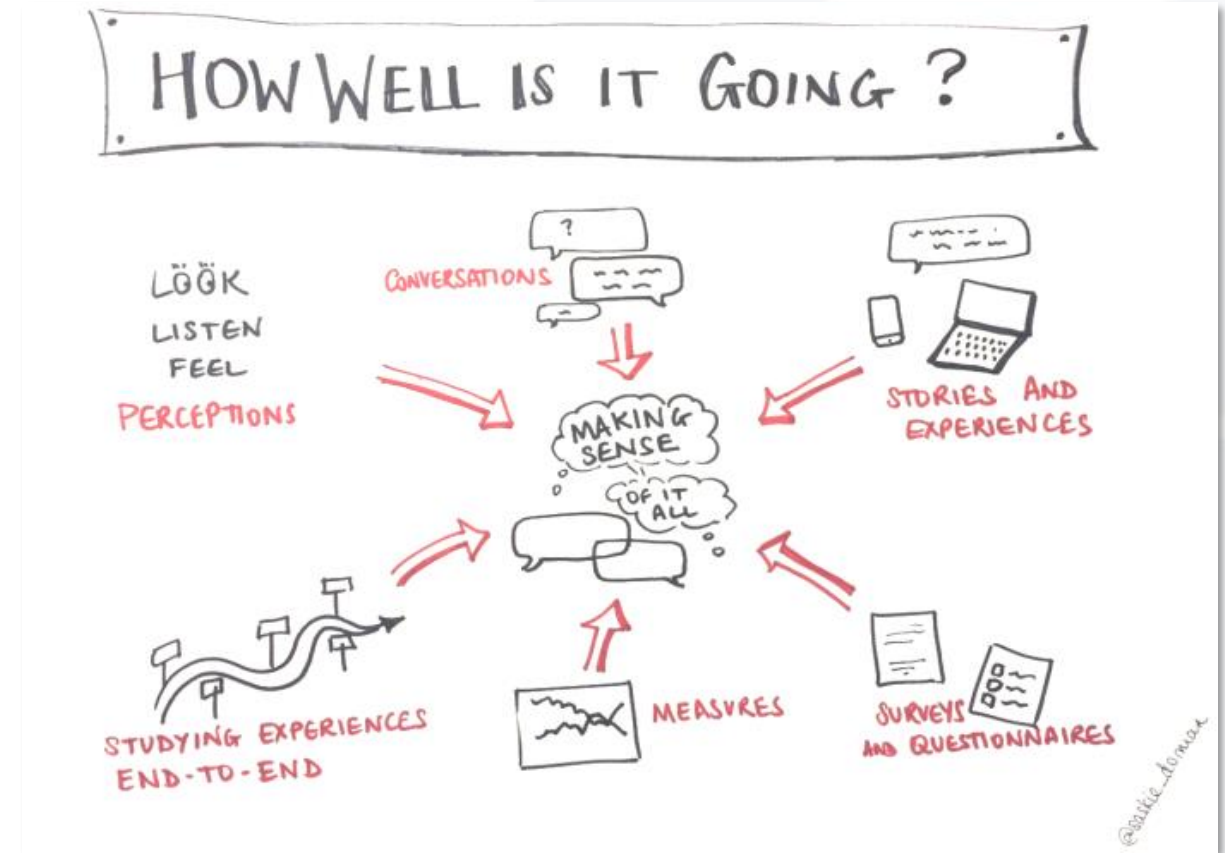 HOW WELL IS IT GOING?
LOOK
LISTEN
FEEL
PERCEPTIONS
?
CONVERSATIONS
STORIES AND
EXPERIENCES
MAKING
SENSE
OF IT
ALL
STUDYING EXPERIENCES
END-TO-END
MEASURES
SURVEYS
AND QUESTIONNAIRES